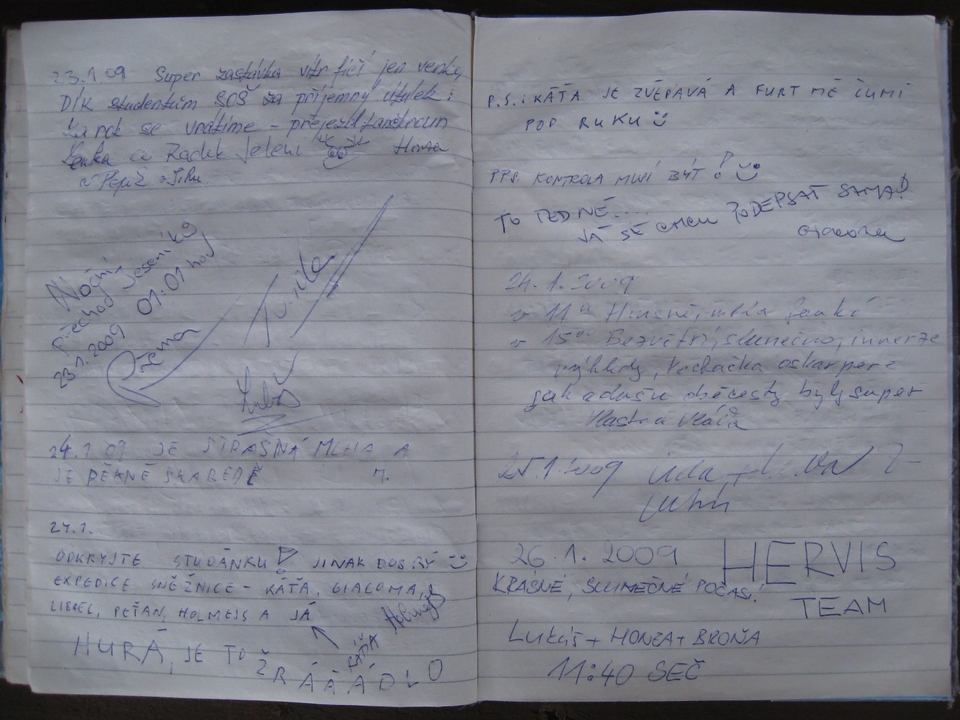 23.1 09 Super zastávka vítr fičí jen venku
DÍK studentům SOŠ za příjemný útulek
za rok se vrátíme - přejezd
Lenka a Radek Jeleni Honza
a Pepíž
Noční
přechod Jeseníků
23.1.2009 01:01 hod
24.1 09 JE STRAŠNÁ MLHA A
JE PĚKNĚ SKAREDĚ M.
24.1.
ODKRYJTE STUDÁNKU! JINAK DOBRÝ
EXPEDICE SNĚŽNICE - KÁŤA, GIACOMA,
LIBEL, PEŤAN, HOLMESS A JÁ
KÁŤA
HURÁ, JE TO ŽRÁÁÁDLO
P.S.: KÁŤA JE ZVĚDAVÁ A FURT MĚ ČUMÍ
POD RUKU
PPS. KONTROLA MUSÍ BÝT!
TO TEDNĚ....
JÁ SE CHCU PODEPSAT SAMA!
Giacoma
24.1.2009
v 11 Hnusně, mlha fouká
v 15 Bezvětří, slunečno, inverze
výhledy, Kochačka
jak a dušu občerstv byly super
Vlasta a Vláďa
25.1.2009
26.1.2009 HERVIS
KRÁSNÉ, SLUNEČNÉ POČASÍ
TEAM
Lukáš + HONZA + BROŇA
11:40 SEČ